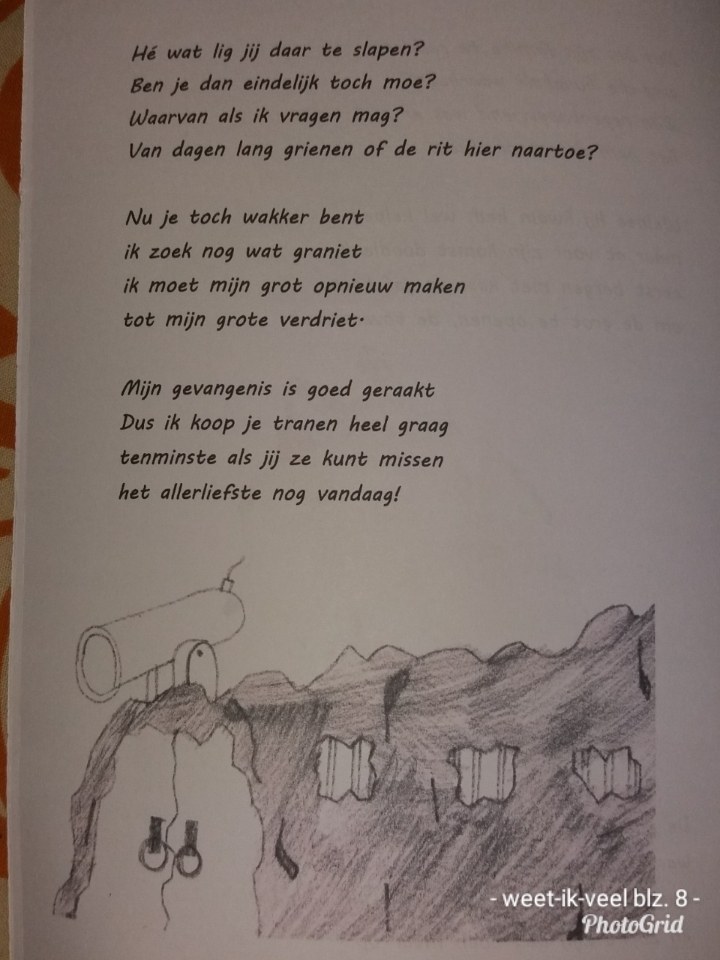 Hé wat lig jij daar te slapen?
Ben je dan eindelijk toch moe?
Waarvan als ik vragen mag?
Van dagen lang grienen of de rit hier naartoe?
Nu je toch wakker bent
ik zoek nog wat graniet
ik moet mijn grot opnieuw maken
tot mijn grote verdriet.
Mijn gevangenis is goed geraakt
Dus ik koop je tranen heel graag
tenminste als jij ze kunt missen
het allerliefste nog vandaag!
- weet-ik-veel blz. 8 -
PhotoGrid